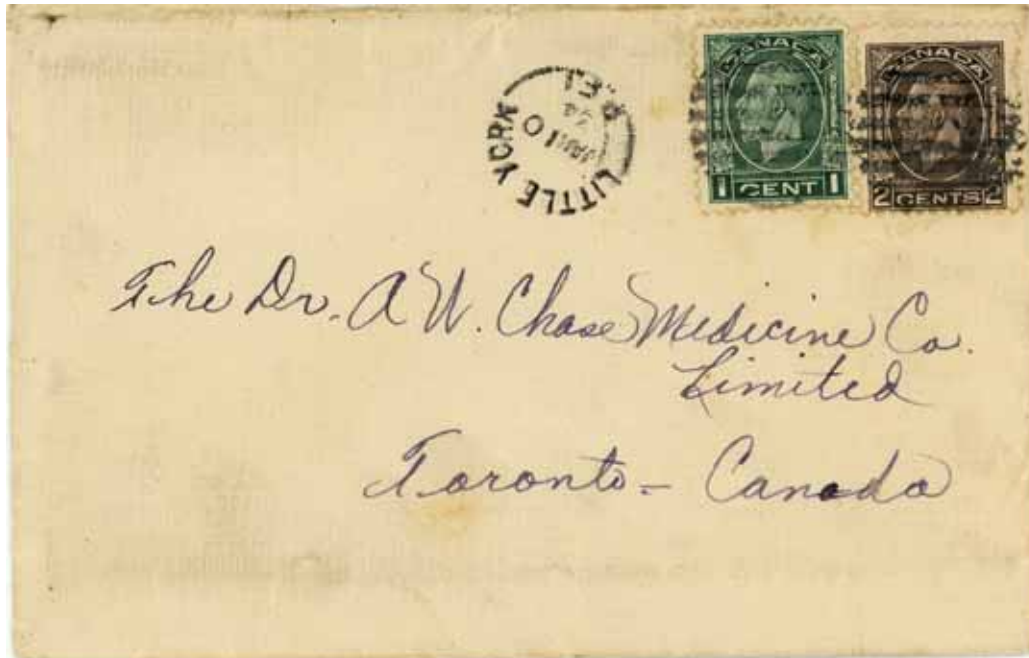 LITTLE YORK
P.E.I.
JAN 10
CANADA
1 CENT 1
CANADA
2 CENTS 2
The Dr. A W. Chase Medicine Co.
Limited
Toronto - Canada